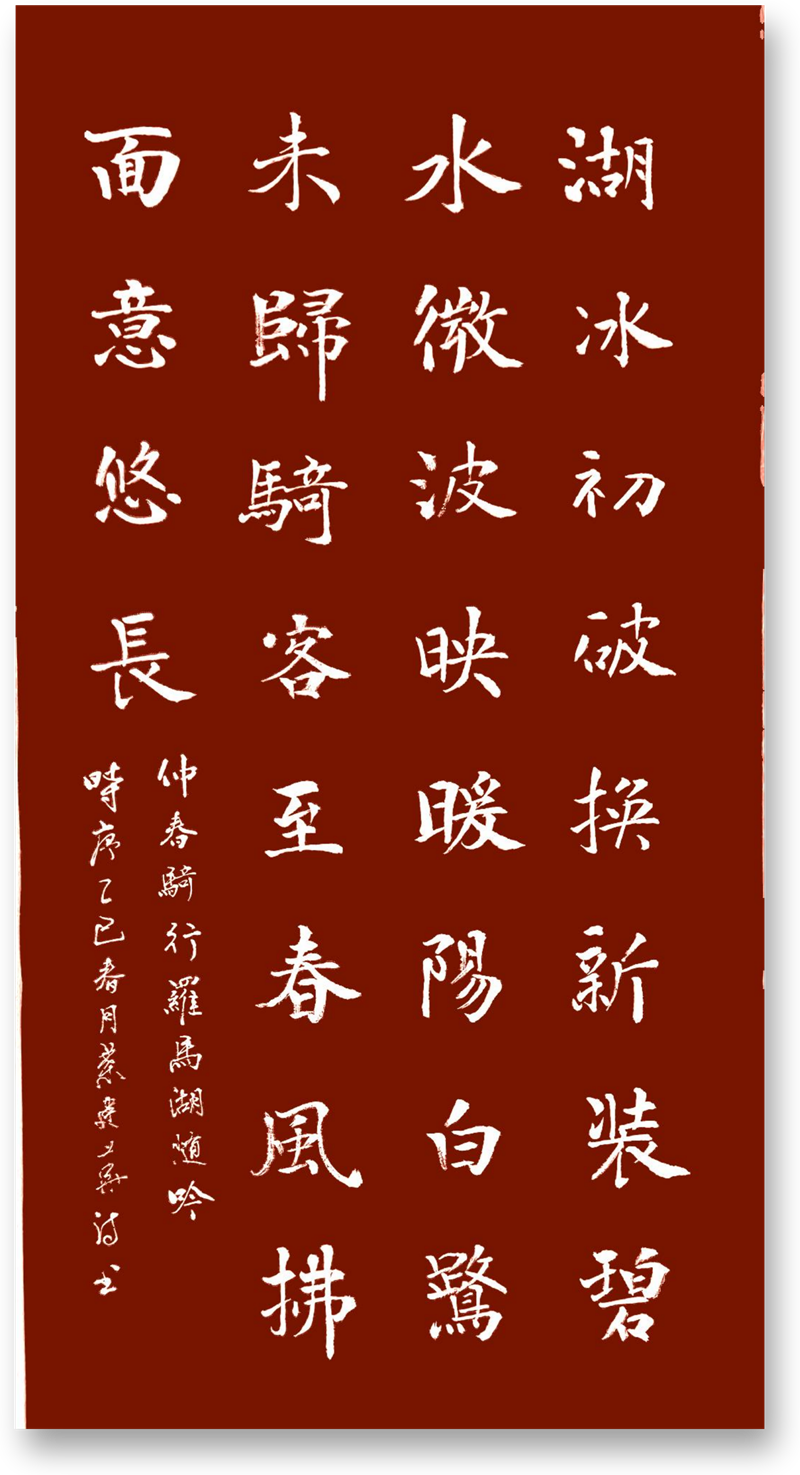 湖冰初破換新装碧
水微波映暖陽白鷺
未歸騎客至春風拂
面意悠長
仲春騎行羅馬湖随吟
時序乙巳春月
詩书